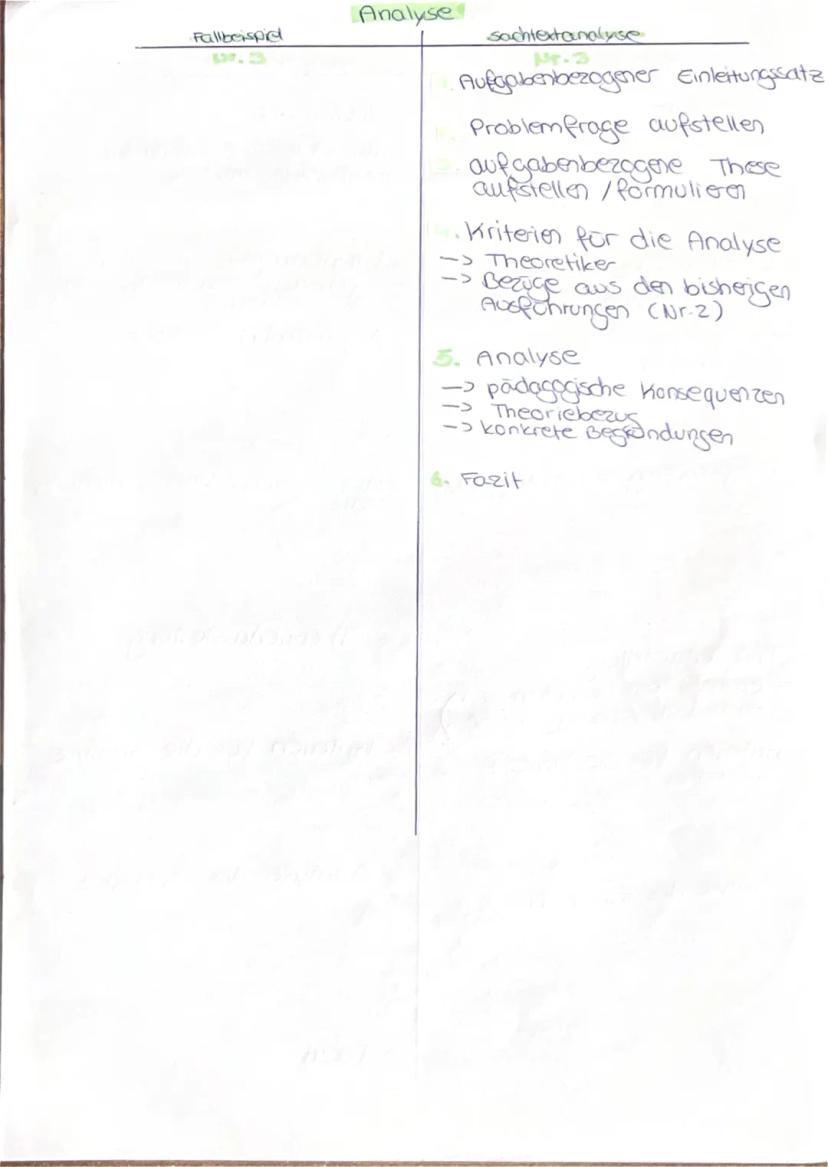 Analyse
Fallbeispiel
Sachtextanalyse
Nr. 3
Nr. 3
Aufgabenbezogener Einleitungssatz
Problemfrage aufstellen
aufgabenbezogene These
aufstellen / formulieren
4. Kriterien für die Analyse
-> Theoretiker
-> Bezüge aus den bisherigen
Ausführungen (Nr. 2)
5. Analyse
-> pädagogische Konsequenzen
-> Theoriebezug
-> konkrete Begründungen
6. Fazit